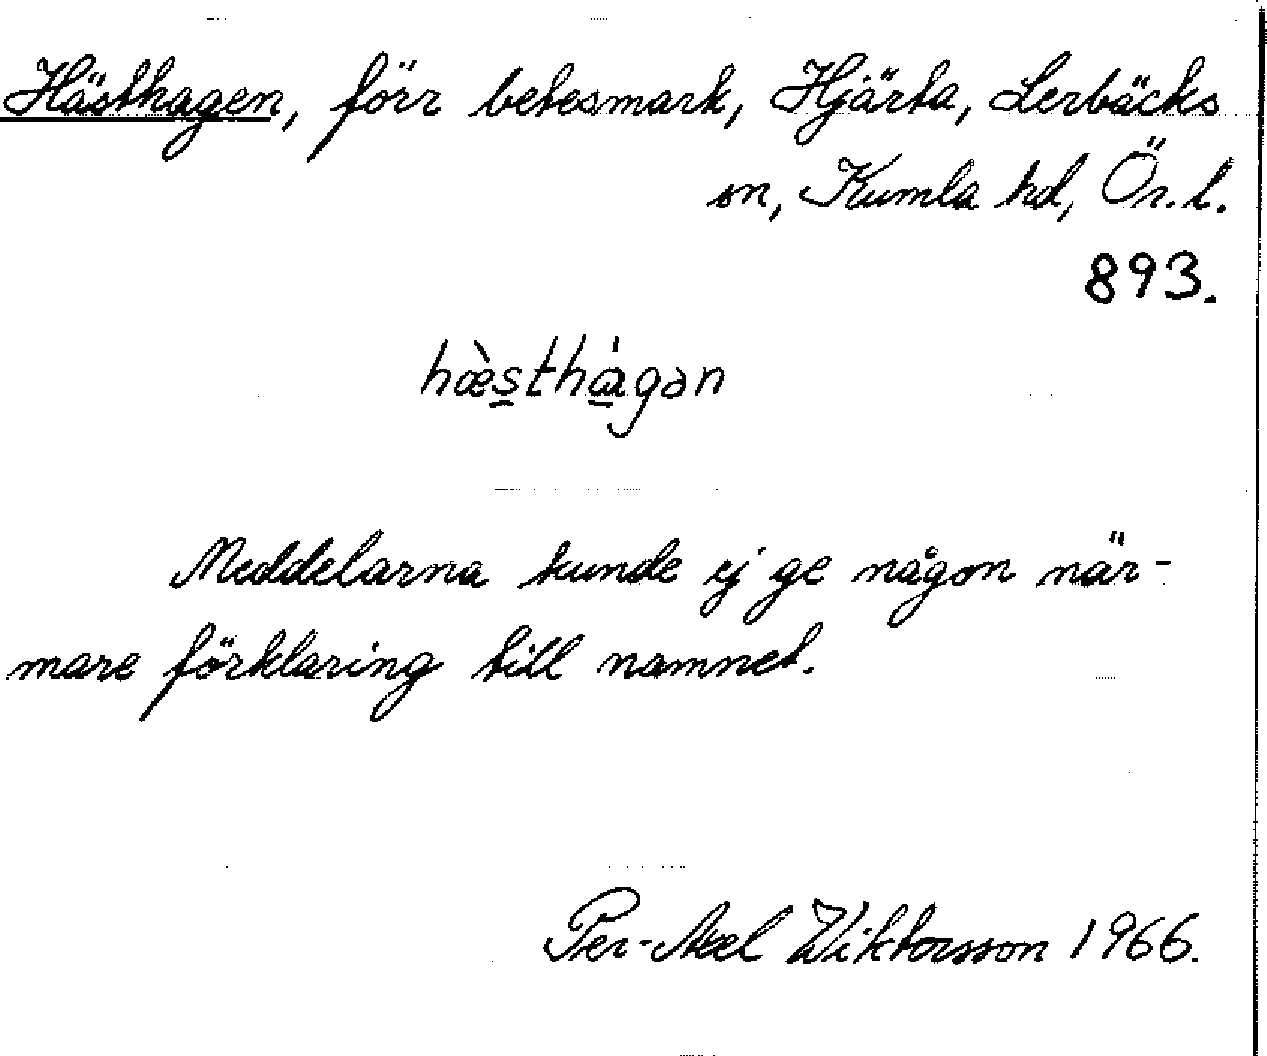 Hästhagen, förr betesmark, Hjärta, Lerbäcks
sn, Kumla hd, Ör. l.
893.
hæ̀s̲thɑ̲́gən
Meddelarna kunde ej ge någon när-
mare förklaring till namnet.
Per-Axel Wiktorsson 1966.